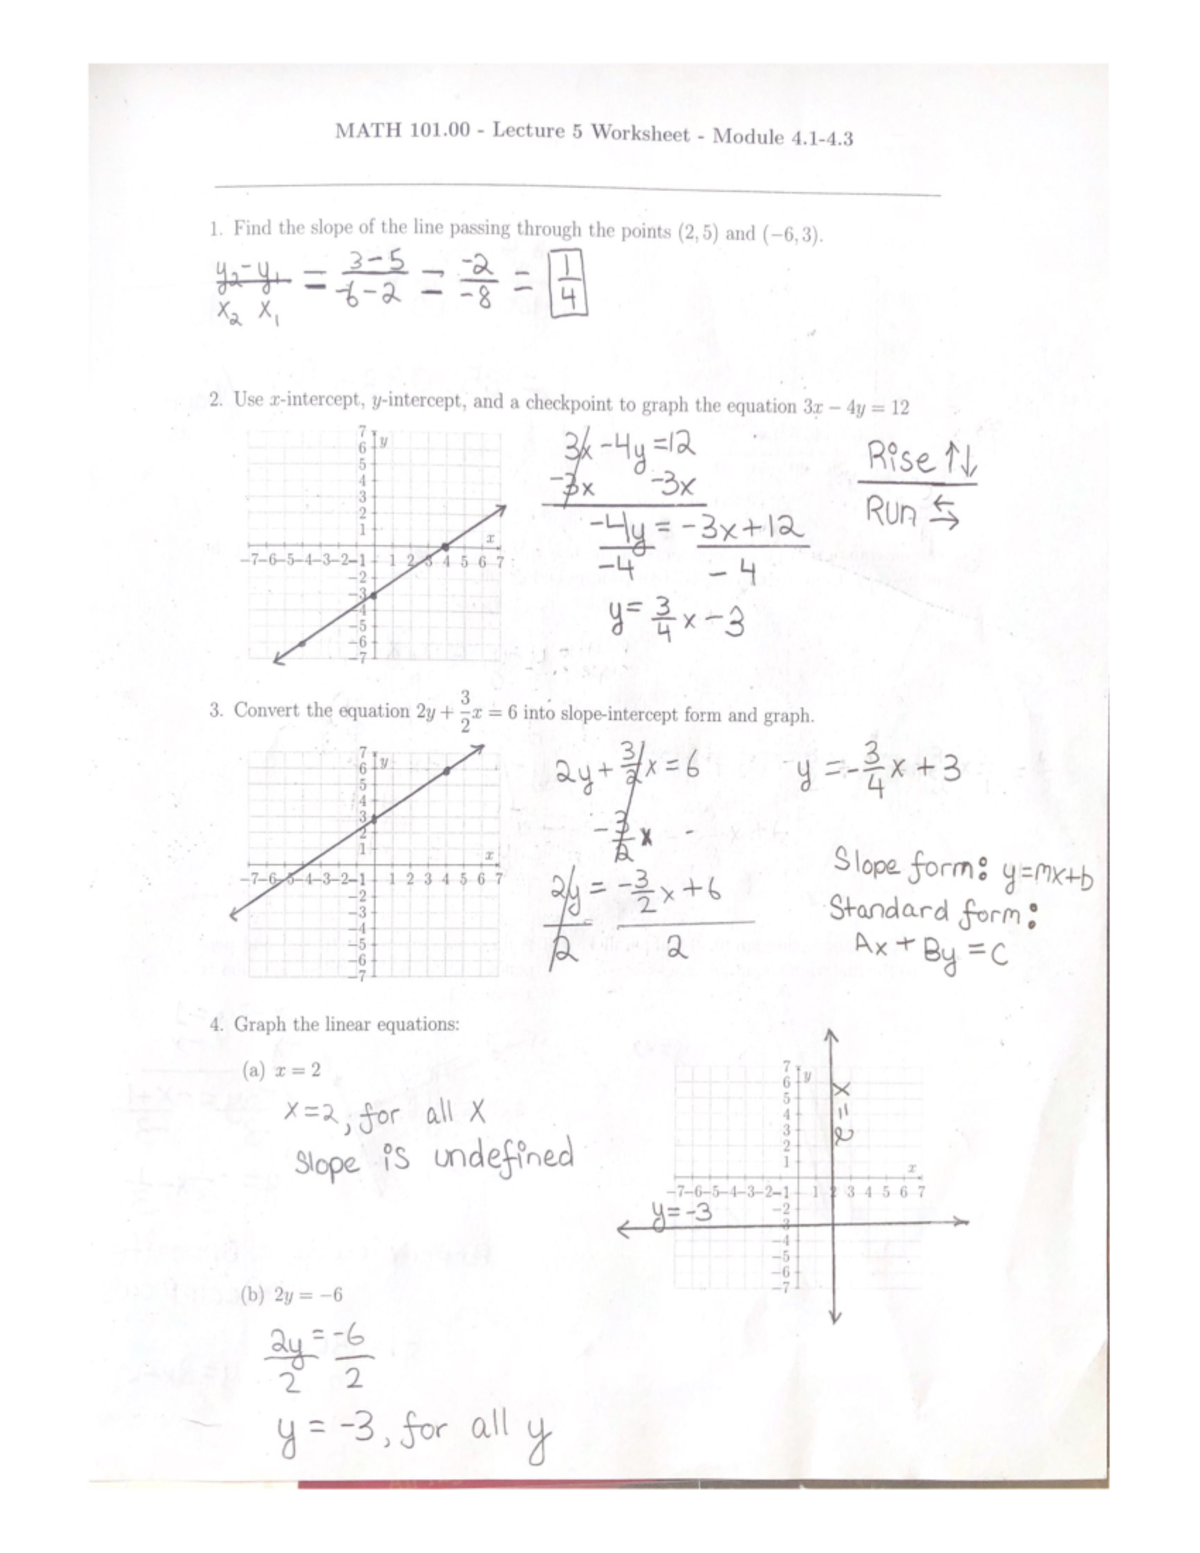 MATH 101.00 - Lecture 5 Worksheet - Module 4.1-4.3
1. Find the slope of the line passing through the points (2, 5) and (−6, 3).
y₂-y₁ = 3-5 = -2 = 1
x₂ x₁ -6-2 -8 4
2. Use x-intercept, y-intercept, and a checkpoint to graph the equation 3x − 4y = 12
7
6 y
5
4
3
2
1
x
-7-6-5-4-3-2-1 1 2 3 4 5 6 7
-2
-3
-4
-5
-6
-7
3x-4y=12
-3x -3x
-4y = -3x+12
-4 -4
y= 3/4 x-3
Rise ↑↓
Run ⇆
3. Convert the equation 2y + 3/2 x = 6 into slope-intercept form and graph.
7
6 y
5
4
3
2
1
x
-7-6-5-4-3-2-1 1 2 3 4 5 6 7
-2
-3
-4
-5
-6
-7
2y+ 3/2 x = 6
- 3/2 x -
2y = -3/2 x+6
2 2
y =- 3/4 x + 3
Slope form: y=mx+b
Standard form:
Ax + By = C
4. Graph the linear equations:
(a) x = 2
x=2, for all x
Slope is undefined
7
6 y
5
4
3
2
1
x
-7-6-5-4-3-2-1 1 2 3 4 5 6 7
-2
-3
-4
-5
-6
-7
x=2
y=-3
(b) 2y = −6
2y = -6
2 2
y = -3, for all y